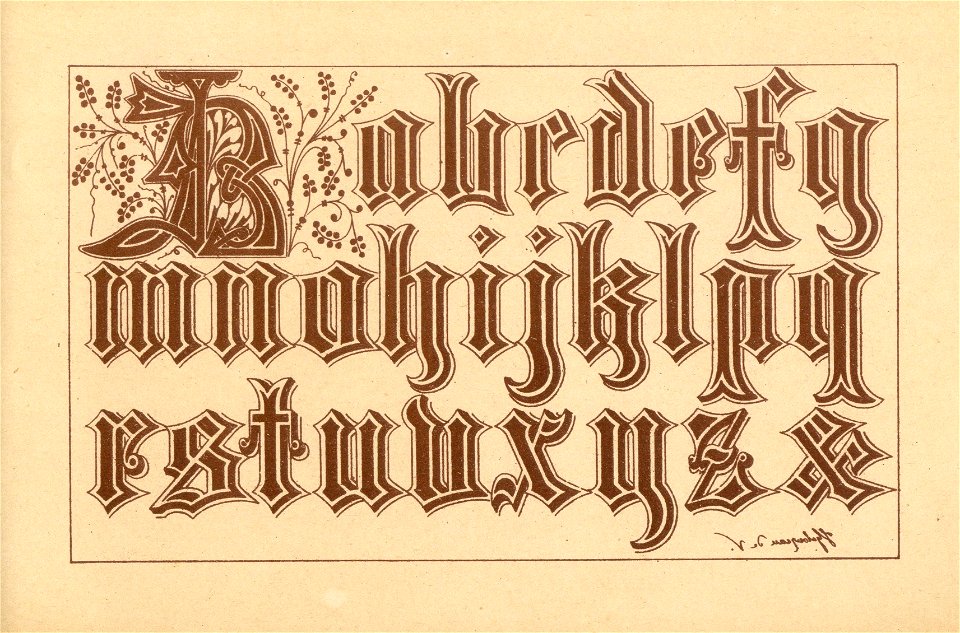 a b c d e f g
m n o h i j k l p q
r s t u v x y z &